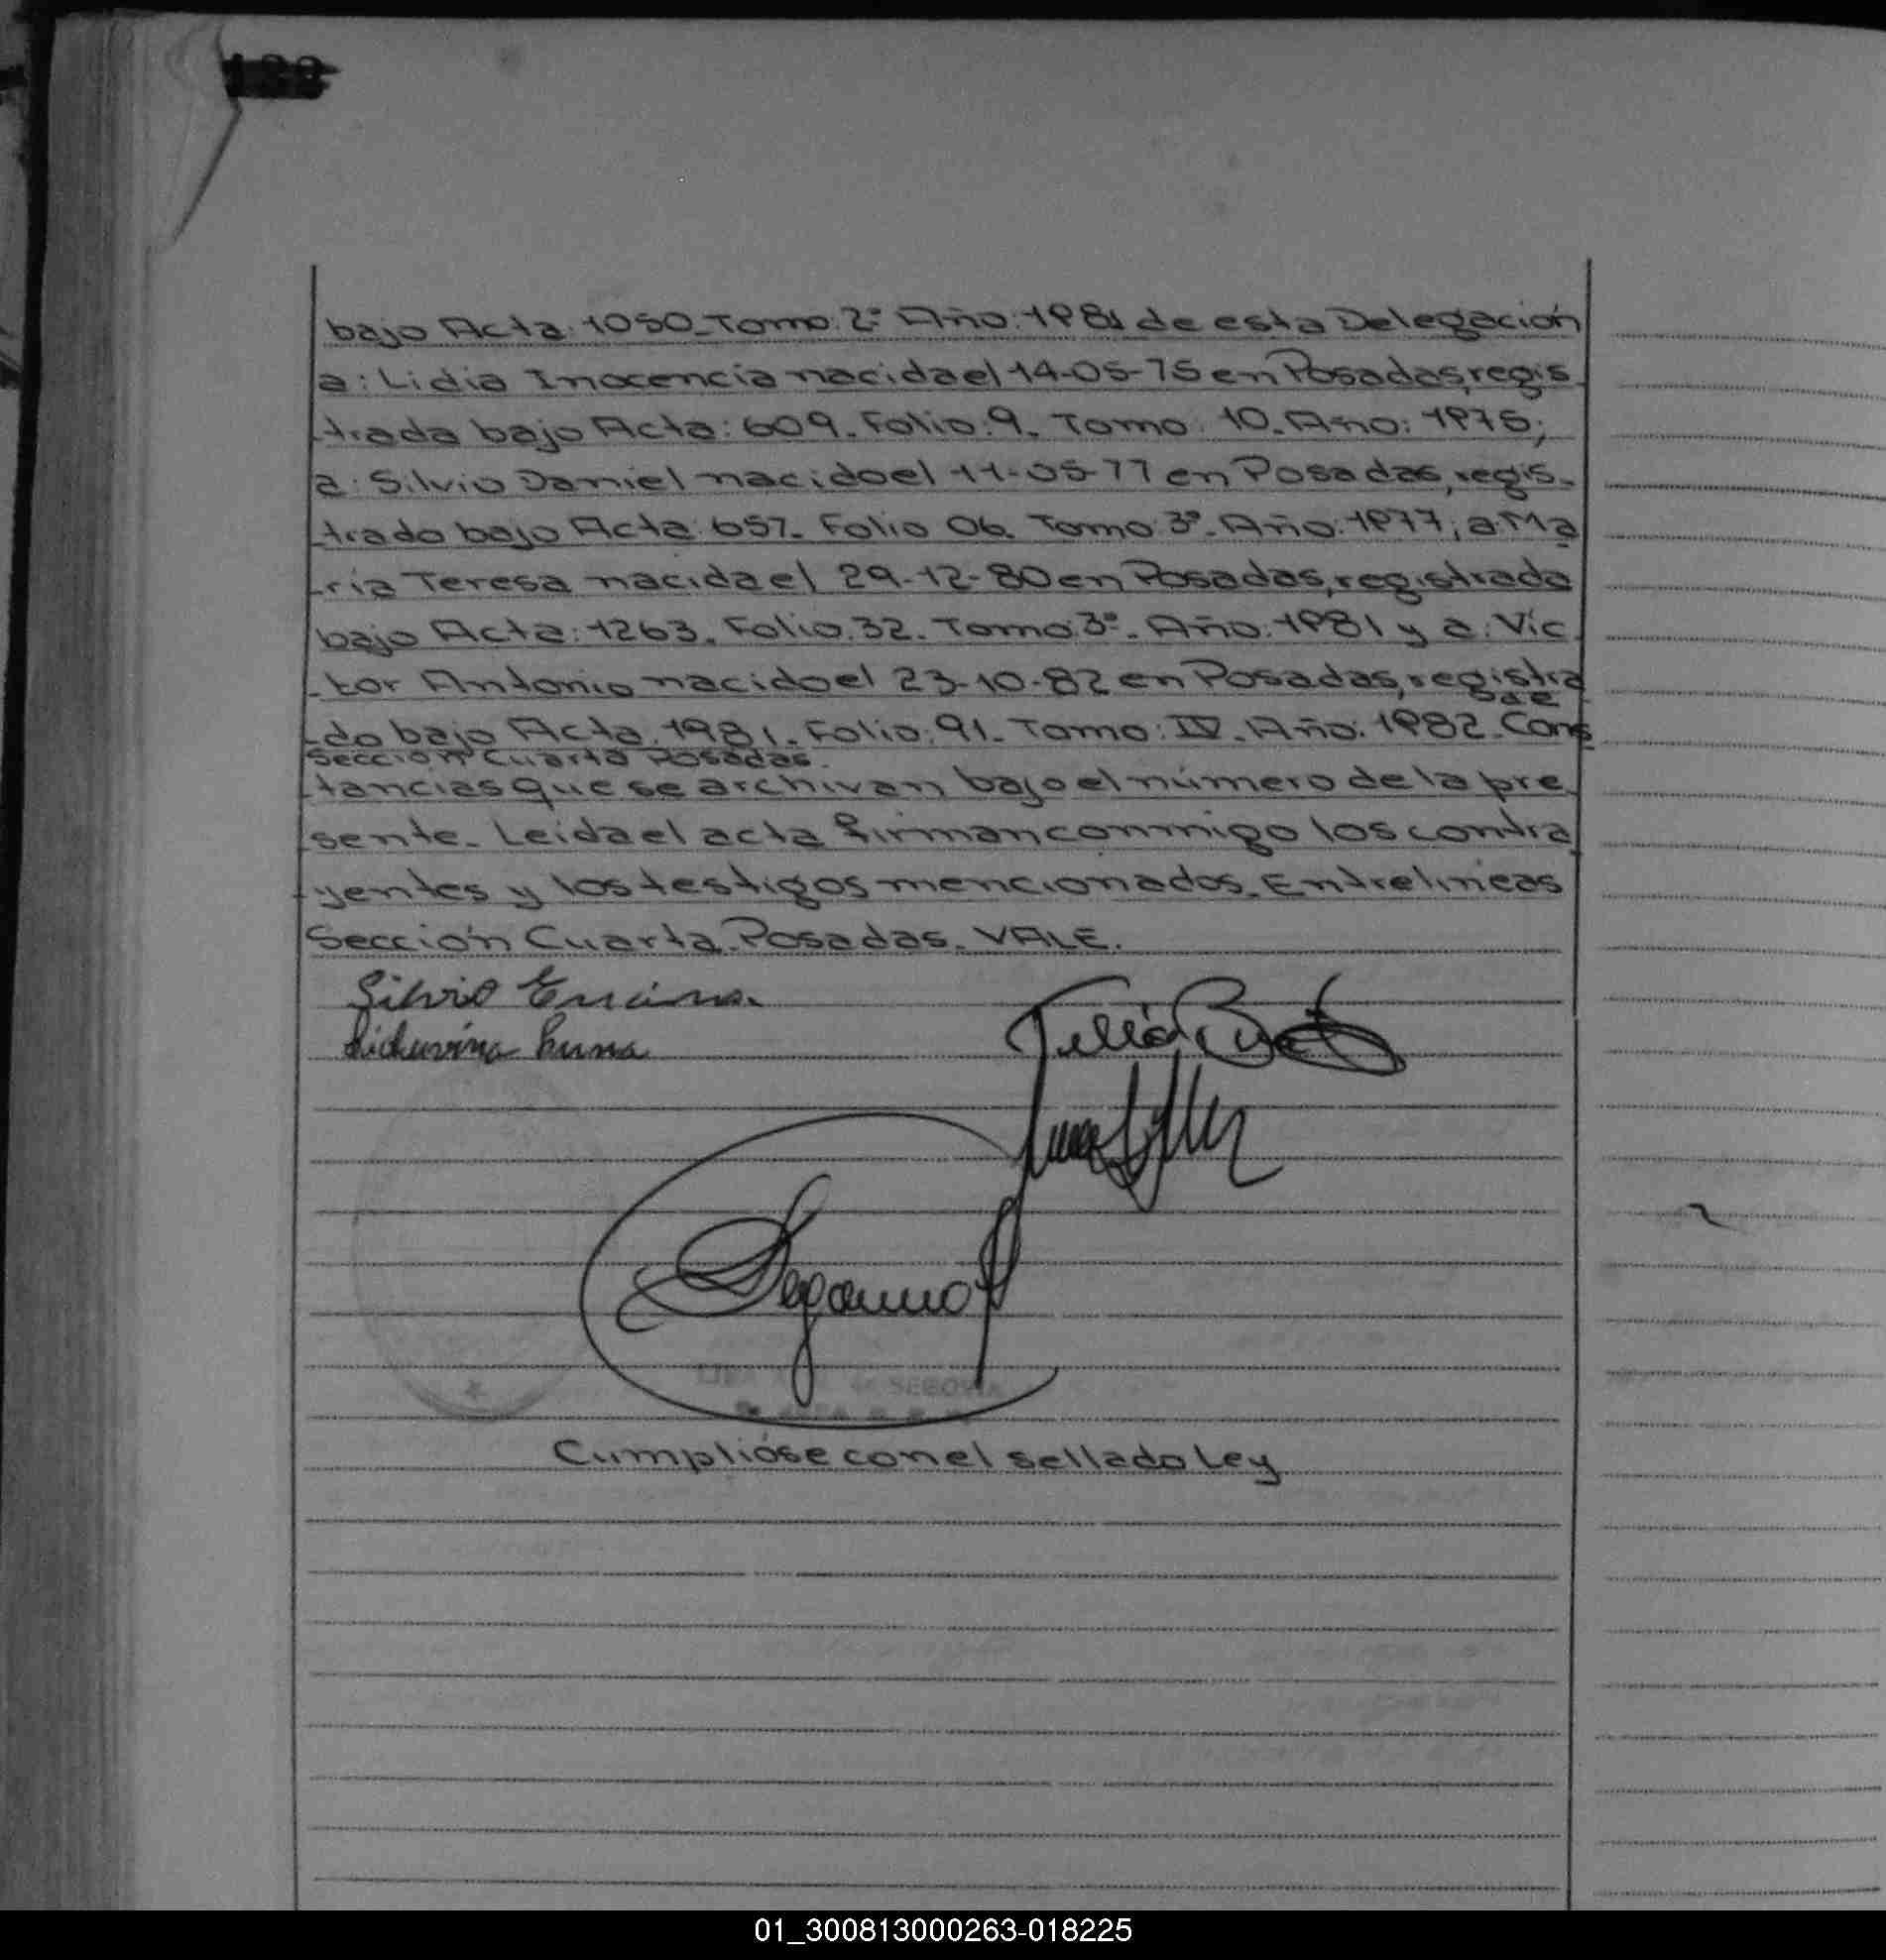 bajo Acta: 1050_Tomo: 2º Año: 1981 de esta Delegación
a: Lidia Inocencia nacida el 14-05-75 en Posadas, regis
trada bajo Acta: 609. Folio: 9. Tomo: 10. Año: 1975;
a: Silvio Daniel nacido el 11-05-77 en Posadas, regis-
trado bajo Acta: 657. Folio 06. Tomo: 3º. Año: 1977; a: Ma
ría Teresa nacida el 29-12-80 en Posadas, registrada
bajo Acta: 1263. Folio: 32. Tomo: 3º. Año: 1981 y a: Víc
tor Antonio nacido el 23-10-82 en Posadas, registra
do bajo Acta: 1981. Folio: 91. Tomo: IV. Año: 1982. Cons
Sección Cuarta Posadas.
tancias que se archivan bajo el número de la pre
sente. Leida el acta firman conmigo los contra
yentes y los testigos mencionados. Entrelineas
Sección Cuarta. Posadas. VALE.
Silvio Encina.
Luna
SEGOVIA
Cumplióse con el sellado Ley
01_300813000263-018225